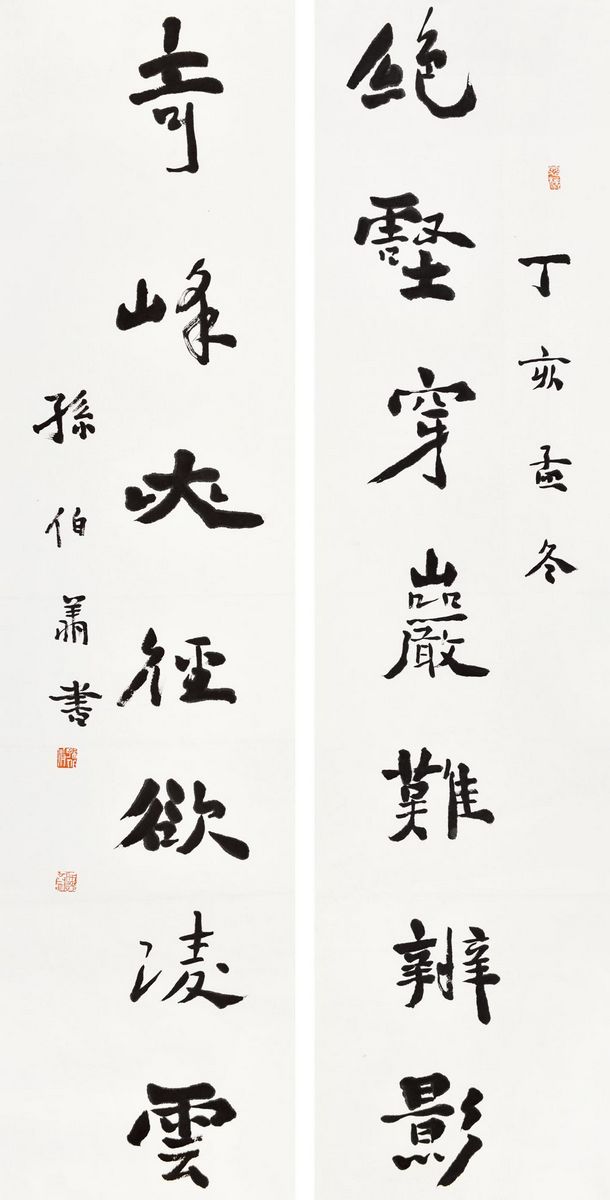 丁亥孟冬
絕壑穿巖難辨影
奇峰夾徑欲凌雲
孫伯翔書